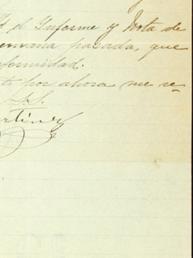 el Informe y Nota de
semana pasada, que
nformidad.
por ahora me re-
rtinez